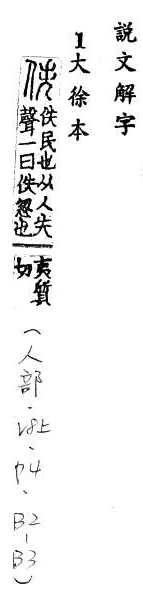 說文解字
1大徐本
佚 佚民也从人失
聲一曰佚忽也
夷質
切
(人部.八上.P4.B2-B3)